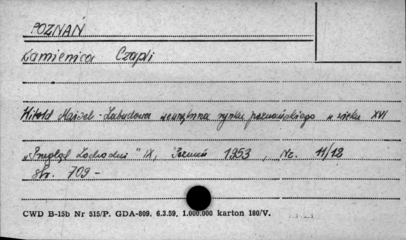 POZNAŃ
Kamienica Czapli
Witold Maisel - Zabudowa wewnętrzna rynku poznańskiego w wieku XVI
"Przegląd Zachodni" IX, Poznań 1953, Nr. 11/12
str. 709 -
CWD B-15b Nr 515/P. GDA-809. 6.3.59. 1.000.000 karton 180/V.